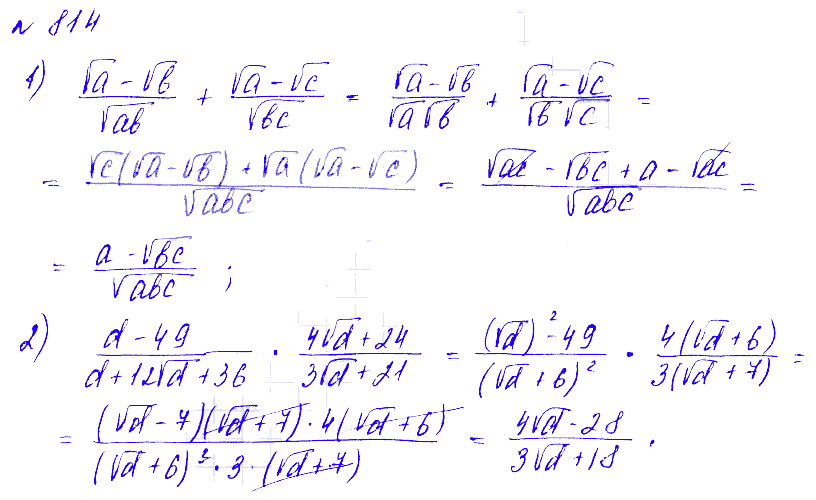 № 814
1) (√a − √b)/√ab + (√a − √c)/√bc = (√a − √b)/(√a √b) + (√a − √c)/(√b √c) =
= (√c(√a − √b) + √a(√a − √c))/√abc = (√ac − √bc + a − √ac)/√abc =
= (a − √bc)/√abc ;
2) (d − 49)/(d + 12√d + 36) · (4√d + 24)/(3√d + 21) = ((√d)² − 49)/(√d + 6)² · 4(√d + 6)/3(√d + 7) =
= ((√d − 7)(√d + 7) · 4(√d + 6))/((√d + 6)² · 3 · (√d + 7)) = (4√d − 28)/(3√d + 18) .